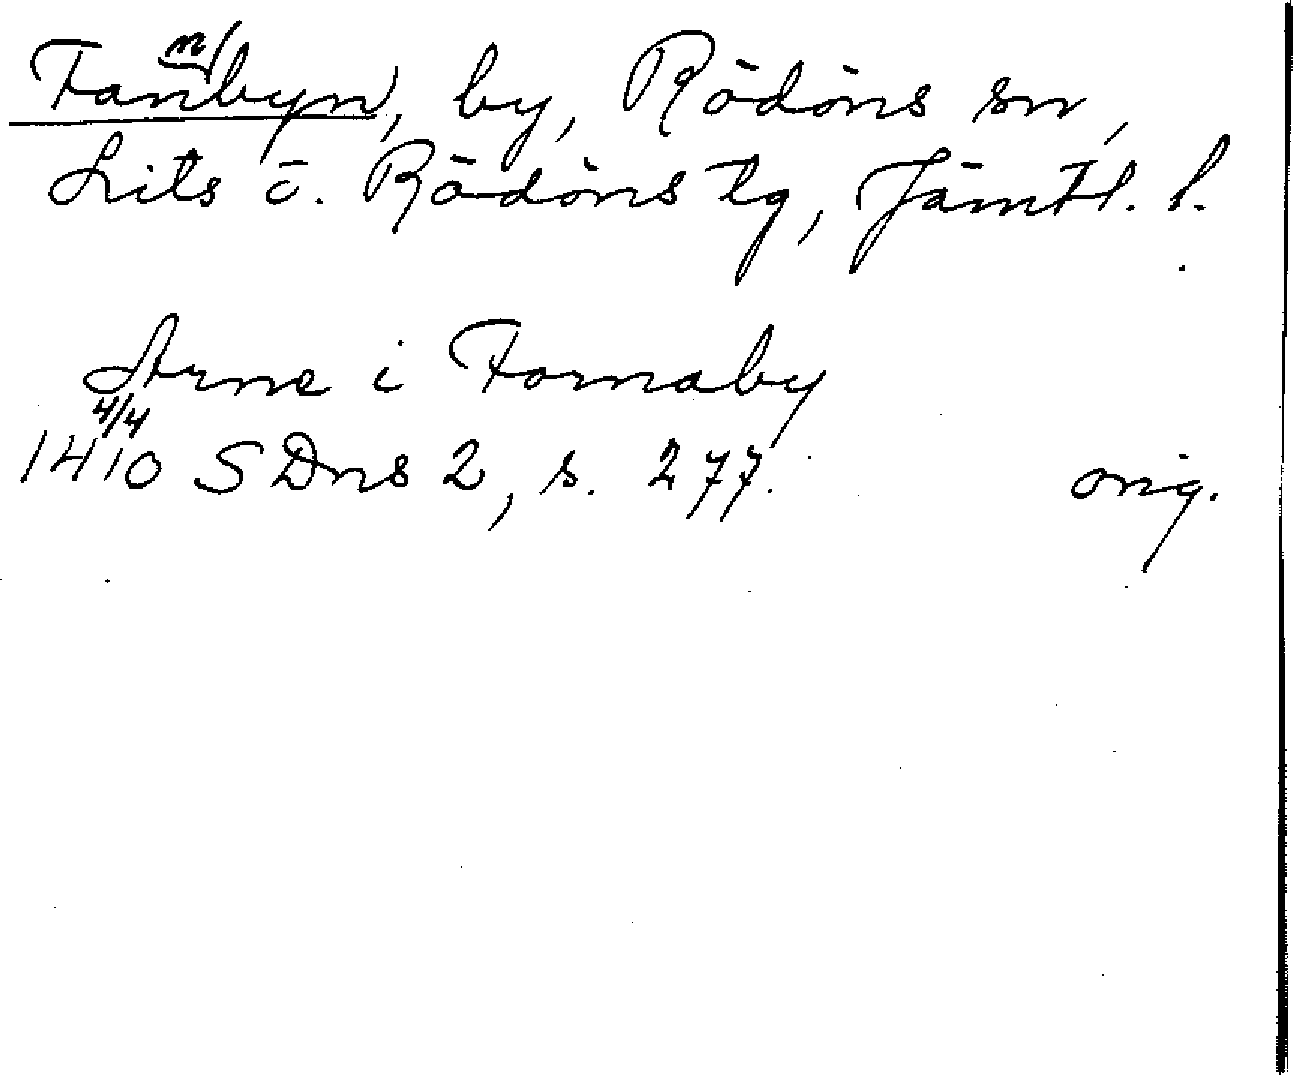 Fannbyn, by, Rödöns sn,
Lits o. Rödöns tg, Jämtl. l.
Arne i Fornaby
4/4
1410 SDns 2, s. 277. orig.